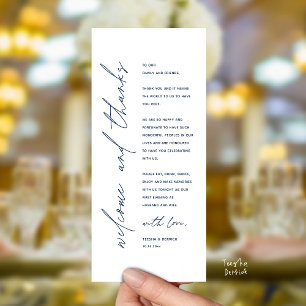 welcome and thanks
TO OUR
FAMILY AND FRIENDS,
THANK YOU AND IT MEANS
THE WORLD TO US TO HAVE
YOU HERE.
WE ARE SO HAPPY AND
FORTUNATE TO HAVE SUCH
WONDERFUL PEOPLE IN OUR
LIVES AND ARE HONOURED
TO HAVE YOU CELEBRATING
WITH US.
PLEASE EAT, DRINK, DANCE,
ENJOY AND MAKE MEMORIES
WITH US TONIGHT AS OUR
FIRST EVENING AS
HUSBAND AND WIFE.
with love,
TEESHA & DERRICK
Teesha
Derrick